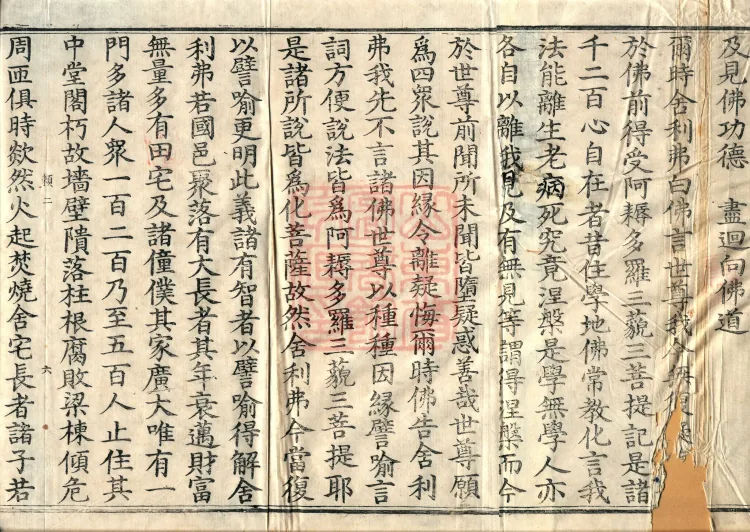 及見佛功德　盡迴向佛道
爾時舍利弗白佛言世尊我今無復
於佛前得受阿耨多羅三藐三菩提記是諸
千二百心自在者昔住學地佛常教化言我
法能離生老病死究竟涅槃是學無學人亦
各自以離我見及有無見等謂得涅槃而今
於世尊前聞所未聞皆墮疑惑善哉世尊願
爲四眾說其因緣令離疑悔爾時佛告舍利
弗我先不言諸佛世尊以種種因緣譬喻言
詞方便說法皆爲阿耨多羅三藐三菩提耶
是諸所說皆爲化菩薩故然舍利弗今當復
以譬喻更明此義諸有智者以譬喻得解舍
利弗若國邑聚落有大長者其年衰邁財富
無量多有田宅及諸僮僕其家廣大唯有一
門多諸人眾一百二百乃至五百人止住其
中堂閣朽故墻壁隤落柱根腐敗梁棟傾危
類二　六
周匝俱時欻然火起焚燒舍宅長者諸子若